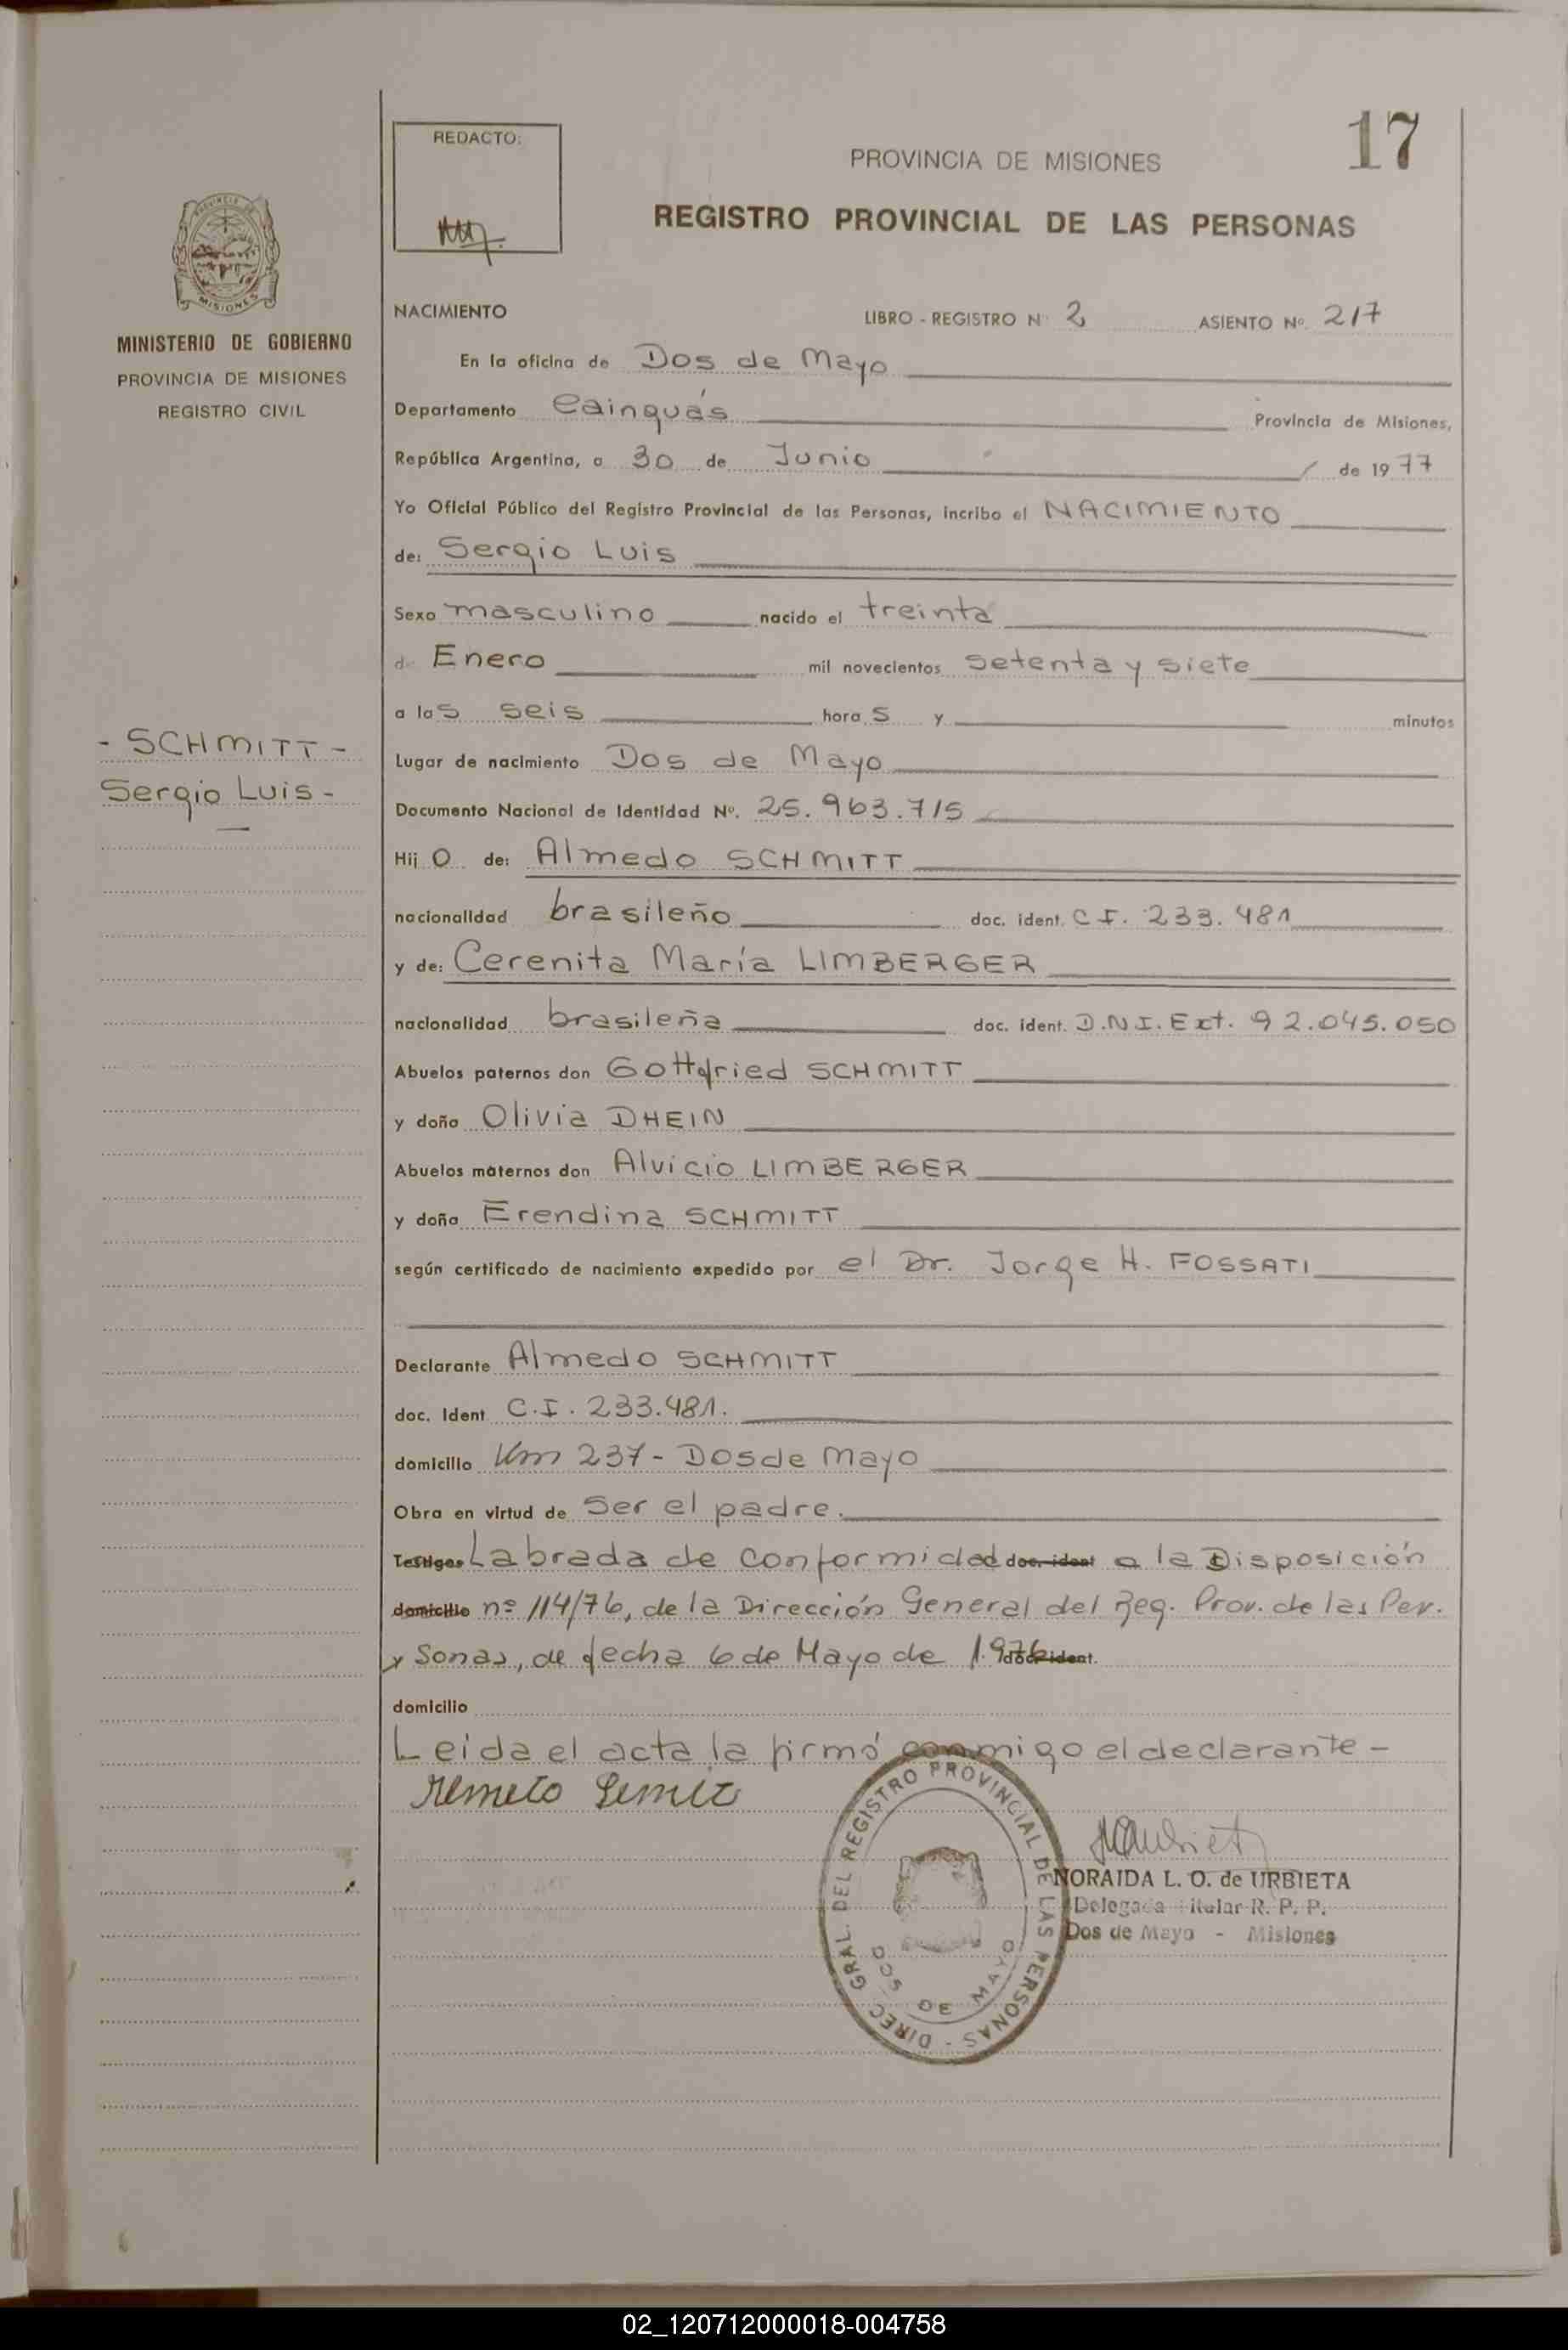 REDACTO:
17
PROVINCIA DE MISIONES
REGISTRO PROVINCIAL DE LAS PERSONAS
MISIONES
MINISTERIO DE GOBIERNO
PROVINCIA DE MISIONES
REGISTRO CIVIL
- SCHMITT -
Sergio Luis -
NACIMIENTO LIBRO - REGISTRO Nº 2 ASIENTO Nº. 217
En la oficina de Dos de Mayo
Departamento Cainguás Provincia de Misiones,
República Argentina, a 30 de Junio de 1977
Yo Oficial Público del Registro Provincial de las Personas, incribo el NACIMIENTO
de: Sergio Luis
Sexo masculino nacido el treinta
de Enero mil novecientos setenta y siete
a las seis horas y minutos
Lugar de nacimiento Dos de Mayo
Documento Nacional de Identidad Nº. 25.963.715
Hijo de: Almedo SCHMITT
nacionalidad brasileño doc. ident. C.I. 233.481
y de: Cerenita María LIMBERGER
nacionalidad brasileña doc. ident. D.N.I. Ext. 92.045.050
Abuelos paternos don Gottfried SCHMITT
y doña Olivia DHEIN
Abuelos maternos don Alvicio LIMBERGER
y doña Erendina SCHMITT
según certificado de nacimiento expedido por el Dr. Jorge H. FOSSATI
Declarante Almedo SCHMITT
doc. Ident C.I. 233.481.
domicilio Km 237 - Dos de Mayo
Obra en virtud de ser el padre.
Testigos Labrada de conformidad doc. ident a la Disposición
domicilio nº 114/76, de la Dirección General del Reg. Prov. de las Per.
y sonas, de fecha 6 de Mayo de 1.976 doc. ident.
domicilio
Leida el acta la firmó conmigo el declarante -
DIREC. GRAL. DEL REGISTRO PROVINCIAL DE LAS PERSONAS -
DOS DE MAYO
NORAIDA L. O. de URBIETA
Delegada Titular R. P. P.
Dos de Mayo - Misiones
02_120712000018-004758